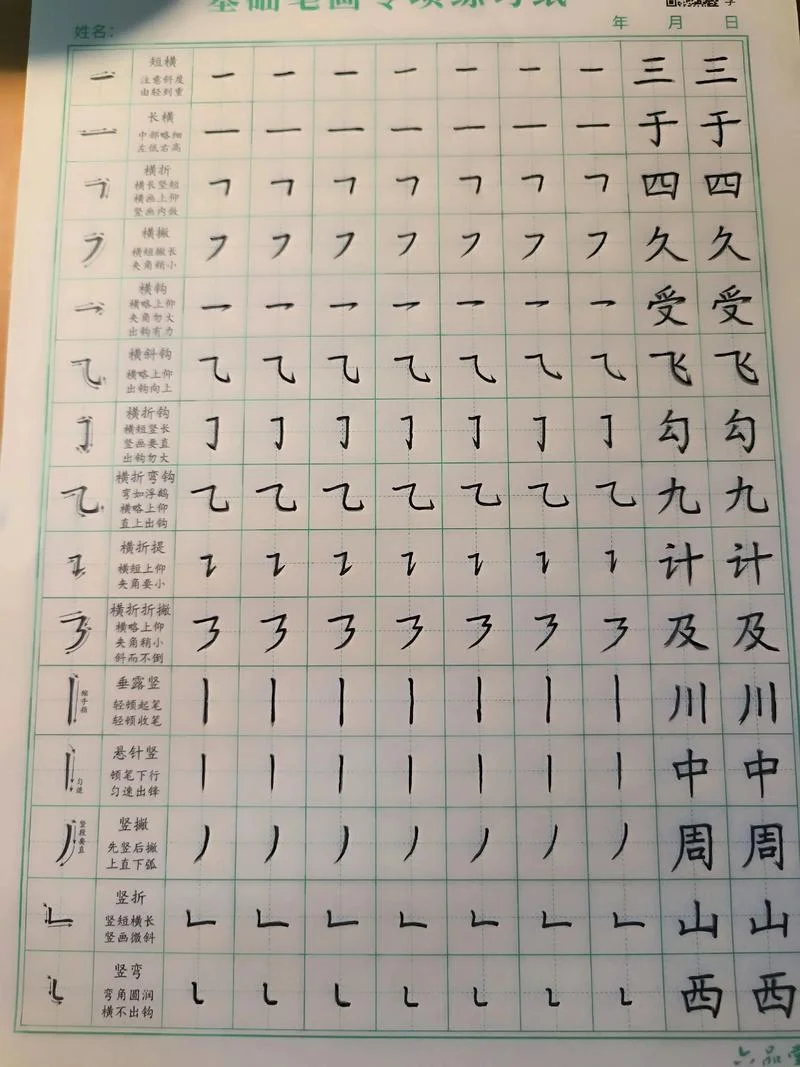 基础笔画专项练习纸
姓名: 年 月 日
短横
注意斜度
由轻到重
一 一 一 一 一 一 一 三 三
长横
中部略细
左低右高
一 一 一 一 一 一 一 于 于
横折
横长竖短
横画上仰
竖画内敛
𠃍 𠃍 𠃍 𠃍 𠃍 𠃍 𠃍 四 四
横撇
横短撇长
夹角稍小
㇇ ㇇ ㇇ ㇇ ㇇ ㇇ ㇇ 久 久
横钩
横略上仰
夹角勿大
出钩有力
乛 乛 乛 乛 乛 乛 乛 受 受
横斜钩
横略上仰
出钩向上
⺄ ⺄ ⺄ ⺄ ⺄ ⺄ ⺄ 飞 飞
横折钩
横短竖长
竖画要直
出钩勿大
𠃌 𠃌 𠃌 𠃌 𠃌 𠃌 𠃌 勾 勾
横折弯钩
弯如浮鹅
横略上仰
直上出钩
乙 乙 乙 乙 乙 乙 乙 九 九
横折提
横短上仰
夹角要小
㇊ ㇊ ㇊ ㇊ ㇊ ㇊ ㇊ 计 计
横折折撇
横略上仰
夹角稍小
斜而不倒
㇋ ㇋ ㇋ ㇋ ㇋ ㇋ ㇋ 及 及
垂露竖
轻顿起笔
轻顿收笔
丨 丨 丨 丨 丨 丨 丨 川 川
匀速
悬针竖
顿笔下行
匀速出锋
丨 丨 丨 丨 丨 丨 丨 中 中
竖段要直
竖撇
先竖后撇
上直下弧
丿 丿 丿 丿 丿 丿 丿 周 周
竖折
竖短横长
竖画微斜
𠃊 𠃊 𠃊 𠃊 𠃊 𠃊 𠃊 山 山
竖弯
弯角圆润
横不出钩
㇄ ㇄ ㇄ ㇄ ㇄ ㇄ ㇄ 西 西
六品堂